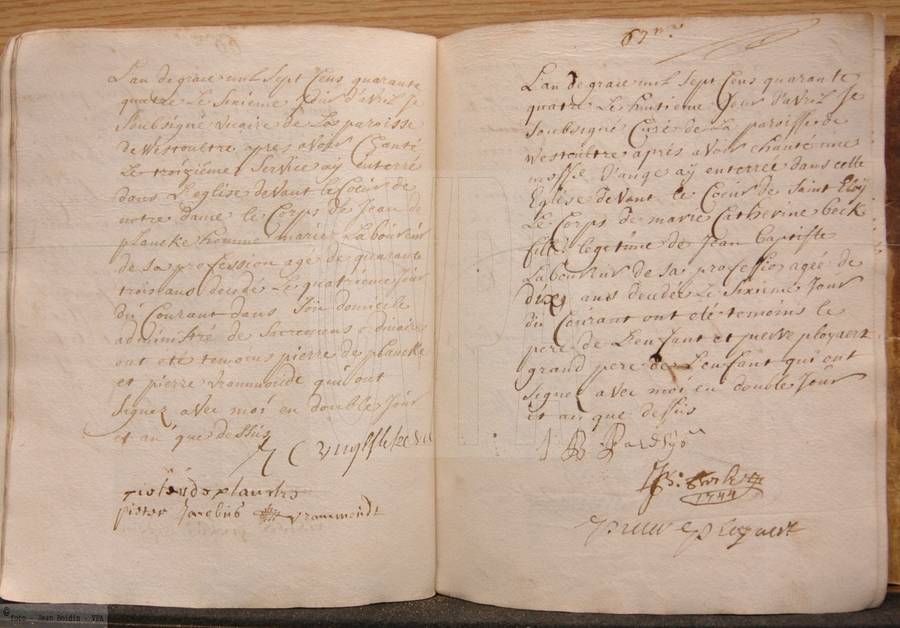 L'an de grace mil Sept Cens quarante
quatre Le Sixieme Jour d'avril Je
Soubsigné vicaire de La paroisse
de Westoultre apres avoir Chanté
Le troizième Service aÿ enterré
dans L'eglise devant le Coeur de
notre dame le Corps de Jean de
plancke homme marié Laboureur
de sa profession agé de quarante
trois ans decedé Le quatrieme Jour
du Courant dans Son domicile
administré de Sacremens
ont eté temoins pierre de plancke
et pierre vrammonde qui ont
signez avec moi en double Jour
et an que dessus
pieter de plancke
pieter Jacobus vrammondt
67
L'an de grace mil Sept Cens quarante
quatre Le huitieme Jour d'avril Je
Soubsigné Curé de La paroisse de
Westoultre après avoir chanté une
messe d'ange aÿ enterrée dans cette
Eglise devant le Coeur de Saint Eloÿ
Le Corps de marie Catherine beck
fille legetime de Jean baptiste
Laboureur de sa profession ageé de
ans decedée Le Sixieme Jour
du Courant ont eté temoins le
pere de L'enfant et pierre ployaert
grand pere de L'enfant qui ont
signez avec moi en double Jour
et an que dessus
1744
© foto - Jean Boidin - VFA